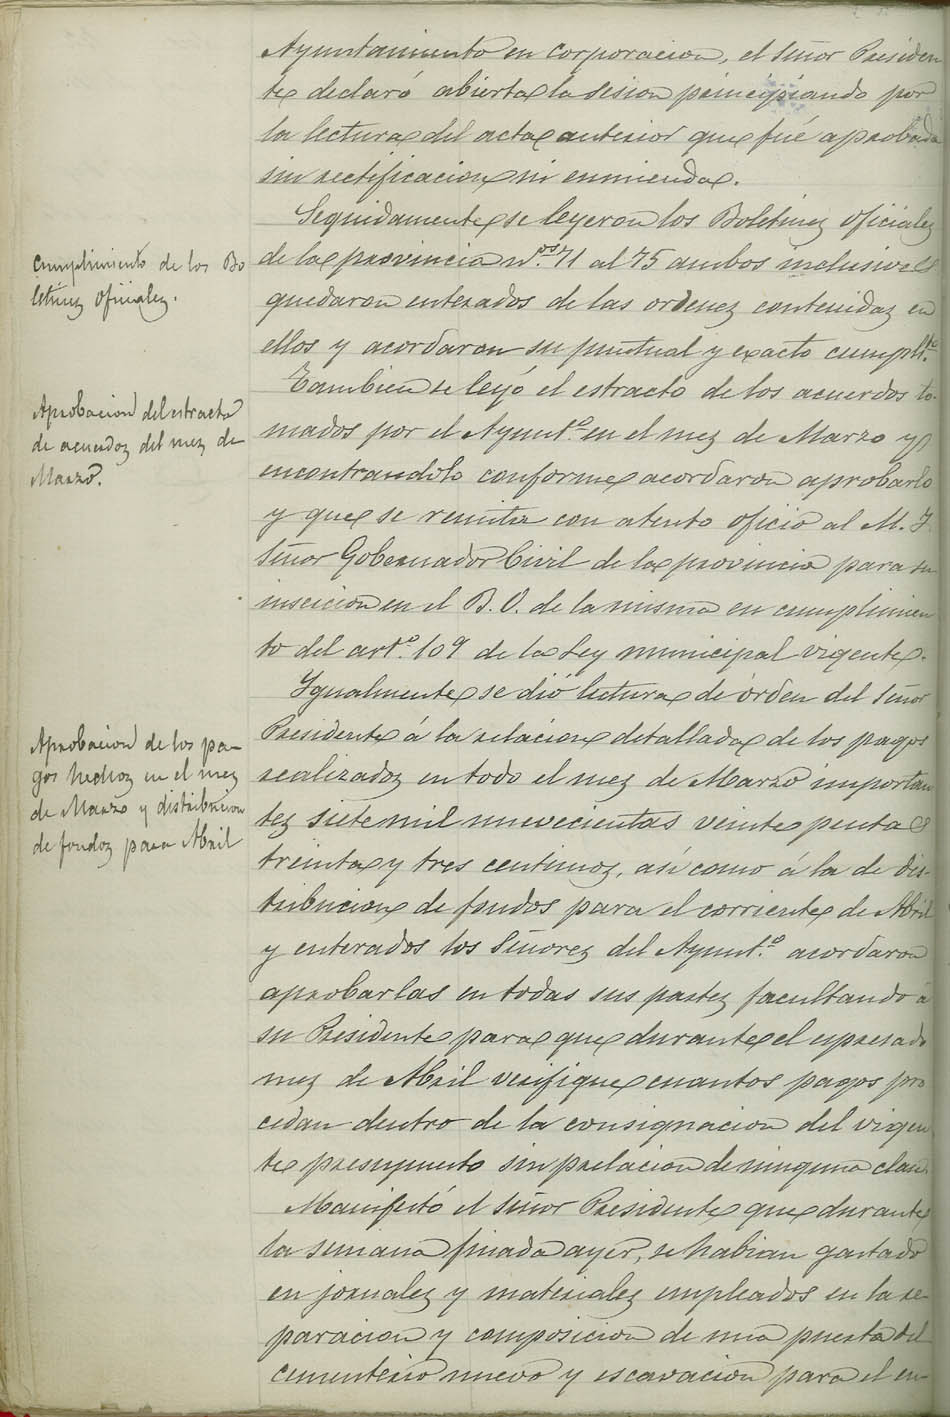 Ayuntamiento en corporacion, el Señor Presiden
te declaró abierta la sesion principiando por
la lectura del acta anterior que fué aprobada
sin rectificacion ni enmienda.
Seguidamente se leyeron los Boletines oficiales
de la provincia nos. 71 al 75 ambos inclusives
quedaron enterados de las ordenes contenidas en
ellos y acordaron su puntual y exacto cumplto.
Cumplimiento de los Bo
letines Oficiales.
Tambien se leyó el estracto de los acuerdos to-
mados por el Ayuntº. en el mes de Marzo y
encontrandolo conforme acordaron aprobarlo
y que se remita con atento oficio al M. I.
Señor Gobernador Civil de la provincia para su
insercion en el B. O. de la misma en cumplimien
to del artº. 109 de la Ley municipal vigente.
Aprobacion del estracto
de acuerdos del mes de
Marzo.
Ygualmente se dió lectura de órden del Señor
Presidente á la relacion detallada de los pagos
realizados en todo el mes de Marzo importan
tes siete mil nuevecientas veinte pesetas
treinta y tres centimos, asi como á la de dis-
tribucion de fondos para el corriente de Abril
y enterados los Señores del Ayuntº. acordaron
aprobarlas en todas sus partes facultando á
su Presidente para que durante el espresado
mes de Abril verifique cuantos pagos pro
cedan dentro de la consignacion del vigen
te presupuesto sin prelacion de ninguna clase.
Aprobacion de los pa-
gos hechos en el mes
de Marzo y distribucion
de fondos para Abril
Manifestó el Señor Presidente que durante
la semana finada ayer, se habian gastado
en jornales y materiales empleados en la re-
paracion y composicion de una puerta del
cementerio nuevo y escavacion para el en-